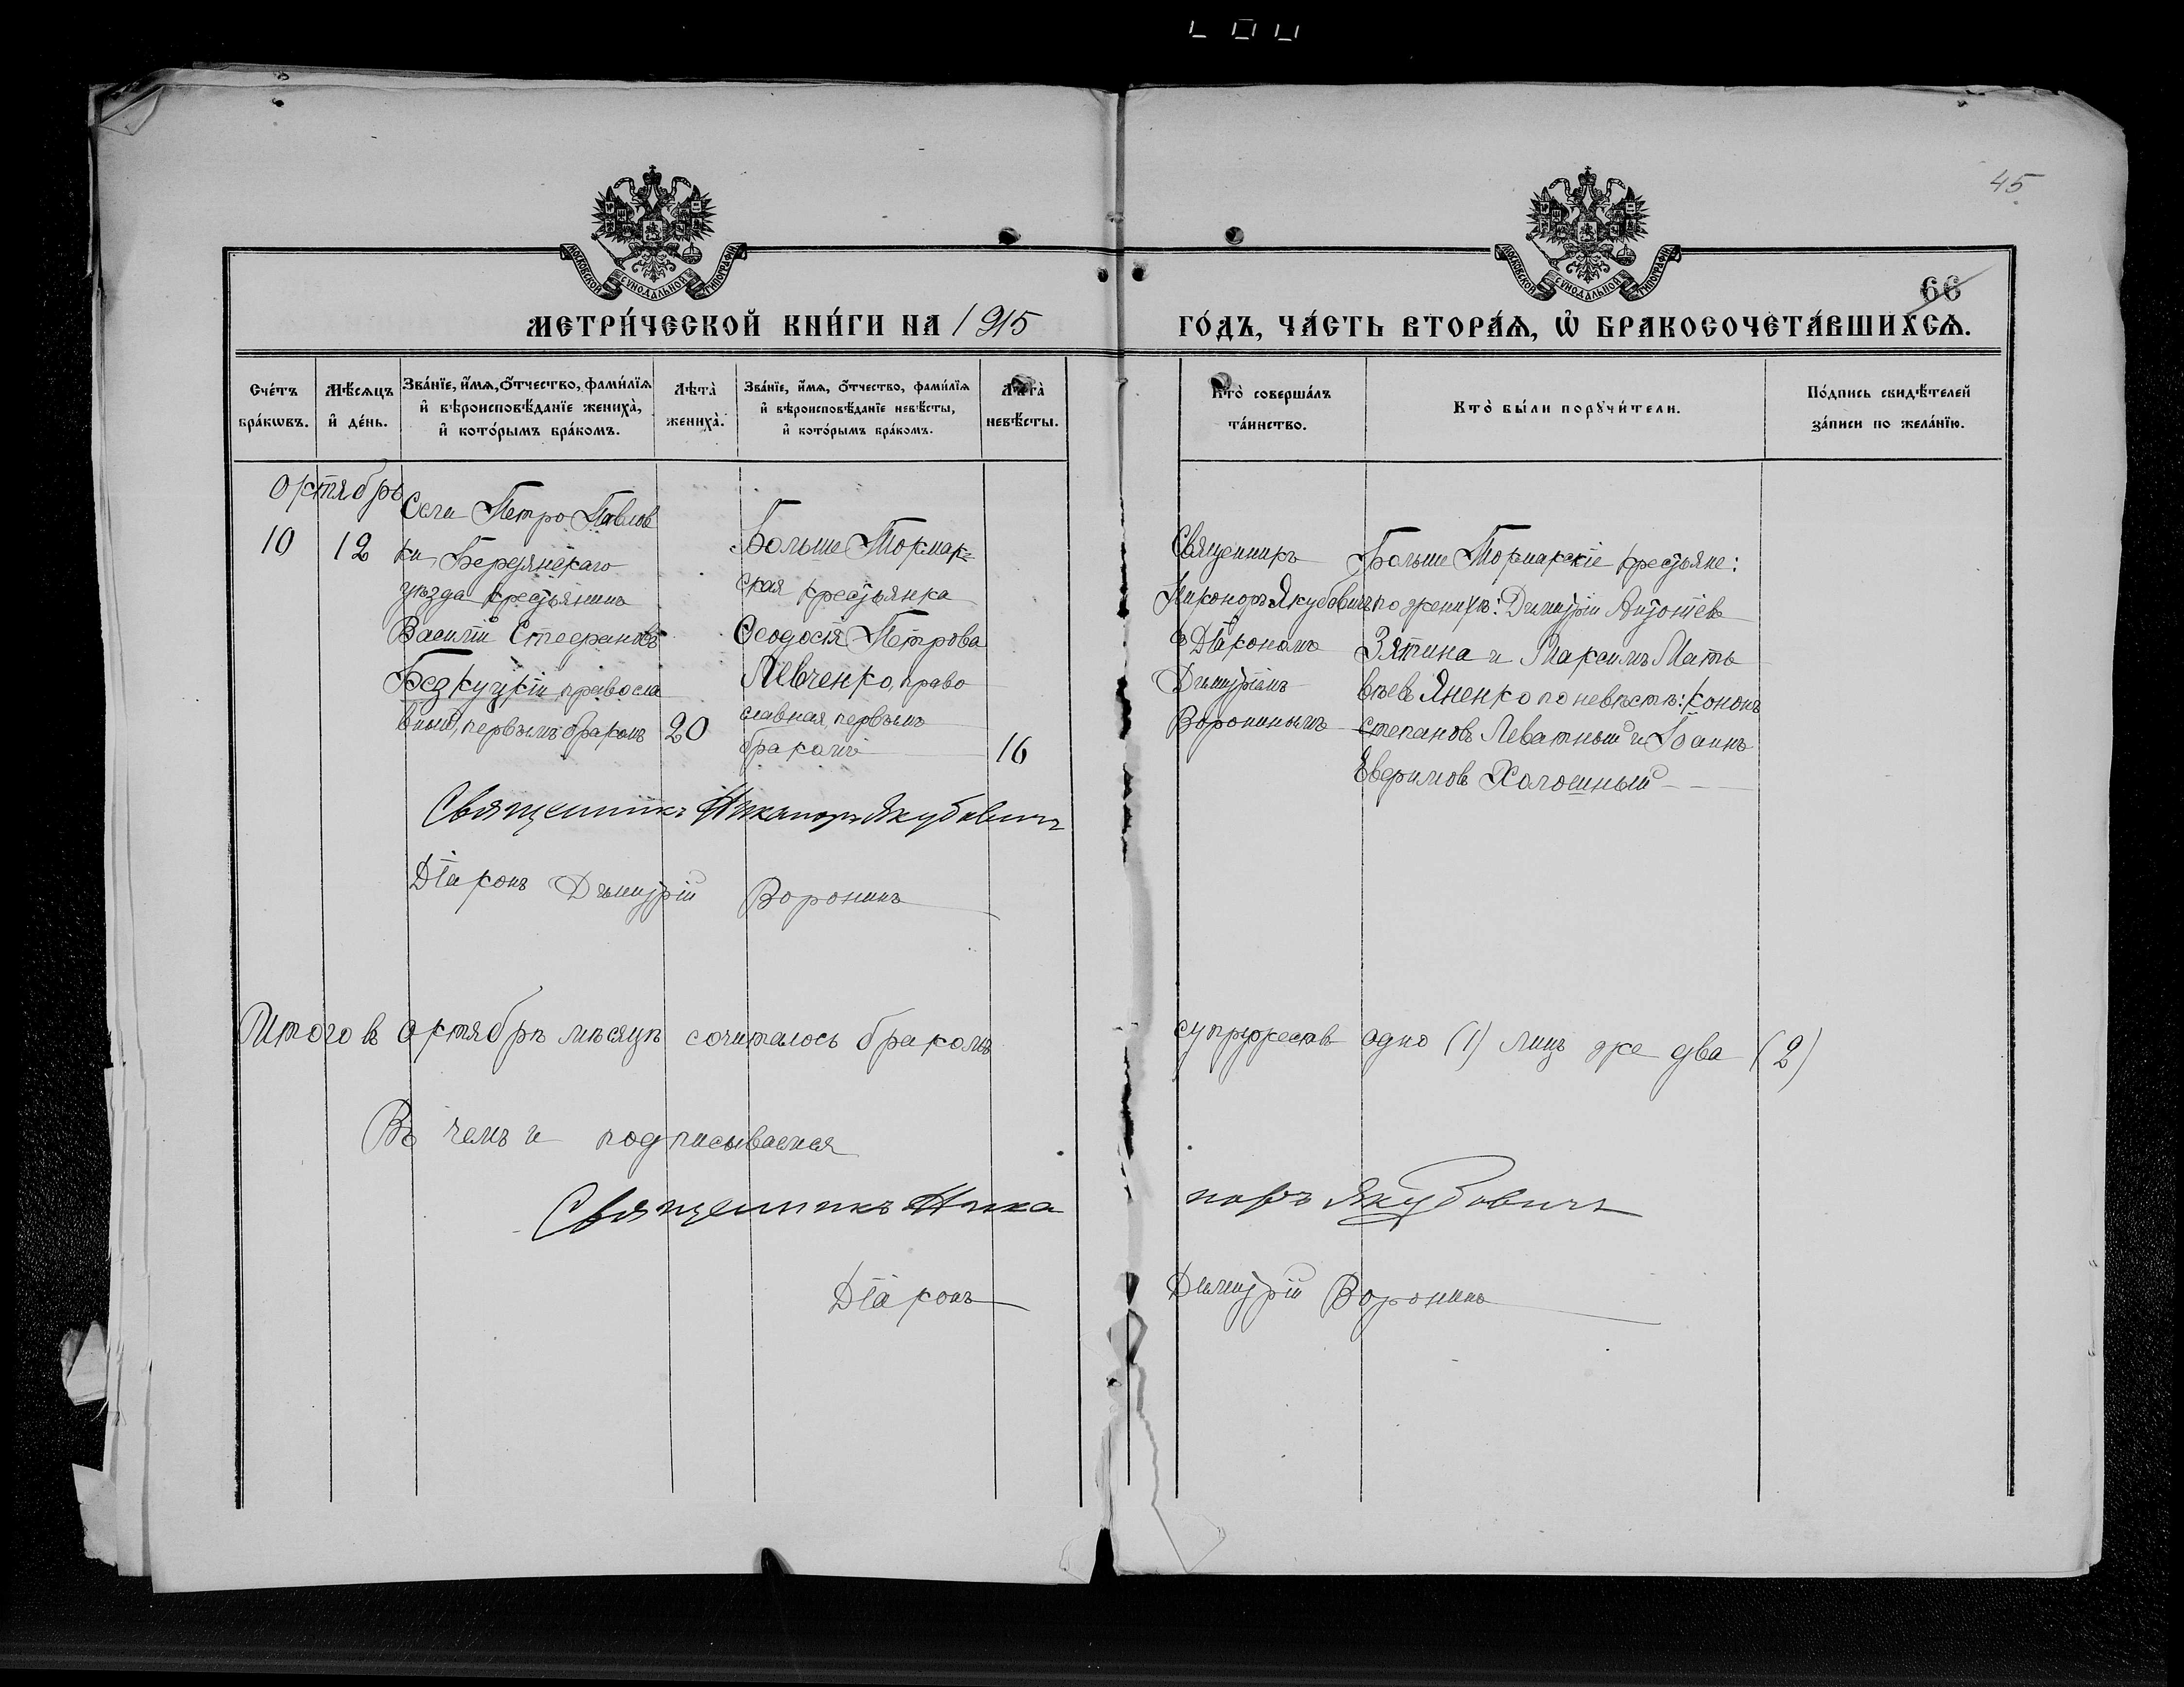 45
МОСКОВСКОЙ СѴНОДАЛЬНОЙ ТИПОГРАФІИ
МОСКОВСКОЙ СѴНОДАЛЬНОЙ ТИПОГРАФІИ
66
МЕТРИ́ЧЕСКОЙ КНИ́ГИ НА 1915
ГО́ДЪ, ЧА́СТЬ ВТОРА́Ѧ, Ѽ БРАКОСОЧЕТА́ВШИХСѦ.
Сче́тъ бра́кωвъ.
Мѣ́сяцъ и҆ де́нь.
Зва́нїе, и҆́мѧ, ѻ҆́тчество, фами́лїѧ и҆ вѣроисповѣ́данїе жениха̀, и҆ кото́рымъ бра́комъ.
Лѣта̀ жениха̀.
Зва́нїе, и҆́мѧ, ѻ҆́тчество, фами́лїѧ и҆ вѣроисповѣ́данїе невѣ́сты, и҆ кото́рымъ бра́комъ.
Лѣта̀ невѣ́сты.
Кто̀ соверша́лъ та́инство.
Кто̀ бы́ли порꙋчи́тели.
По́дпись свидѣ́телей за́писи по жела́нїю.
Октябрь
10
12
Села Петро Павлов
ки Бердянскаго
уѣзда крестьянинъ
Василій Стефановъ
Безкуцкій, правосла
вный, первымъ бракомъ
20
Больше Токмак=
ская крестьянка
Ѳеодосія Петрова
Левченко, право
славная, первымъ
бракомъ
16
Священникъ
Никаноръ Якубовичъ
съ Діакономъ
Димитріемъ
Воронинымъ
Больше Токмакскіе крестьяне:
по женихѣ: Димитрій Антоніевъ
Зятина и Максимъ Матѳ
ѣевъ Яненко по невѣстѣ: Кононъ
Степановъ Леватный и Іоаннъ
Ефимовъ Холошный
Священникъ Никаноръ Якубовичъ
Діаконъ Димитрій Воронинъ
Итого въ октябрѣ мѣсяцѣ сочиталось бракомъ супружествъ одно (1) лицъ же два (2)
Въ чемъ и подписываемся
Священникъ Никаноръ Якубовичъ
Діаконъ Димитрій Воронинъ